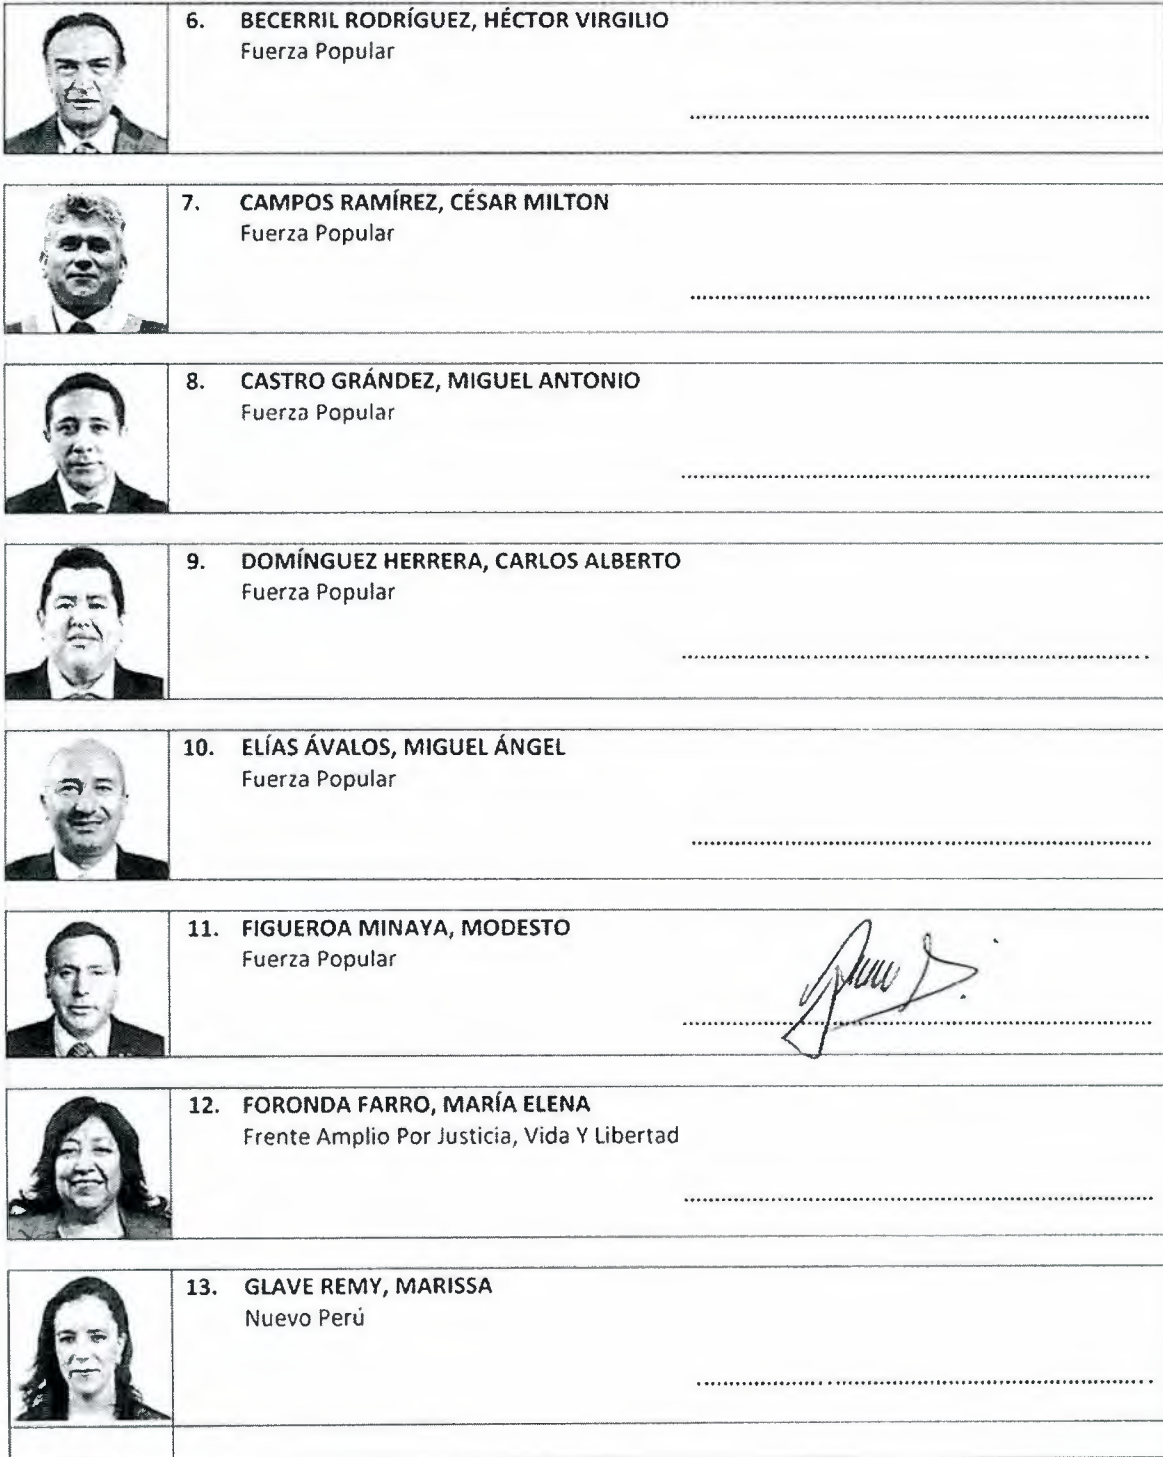 6. BECERRIL RODRÍGUEZ, HÉCTOR VIRGILIO
Fuerza Popular
7. CAMPOS RAMÍREZ, CÉSAR MILTON
Fuerza Popular
8. CASTRO GRÁNDEZ, MIGUEL ANTONIO
Fuerza Popular
9. DOMÍNGUEZ HERRERA, CARLOS ALBERTO
Fuerza Popular
10. ELÍAS ÁVALOS, MIGUEL ÁNGEL
Fuerza Popular
11. FIGUEROA MINAYA, MODESTO
Fuerza Popular
12. FORONDA FARRO, MARÍA ELENA
Frente Amplio Por Justicia, Vida Y Libertad
13. GLAVE REMY, MARISSA
Nuevo Perú